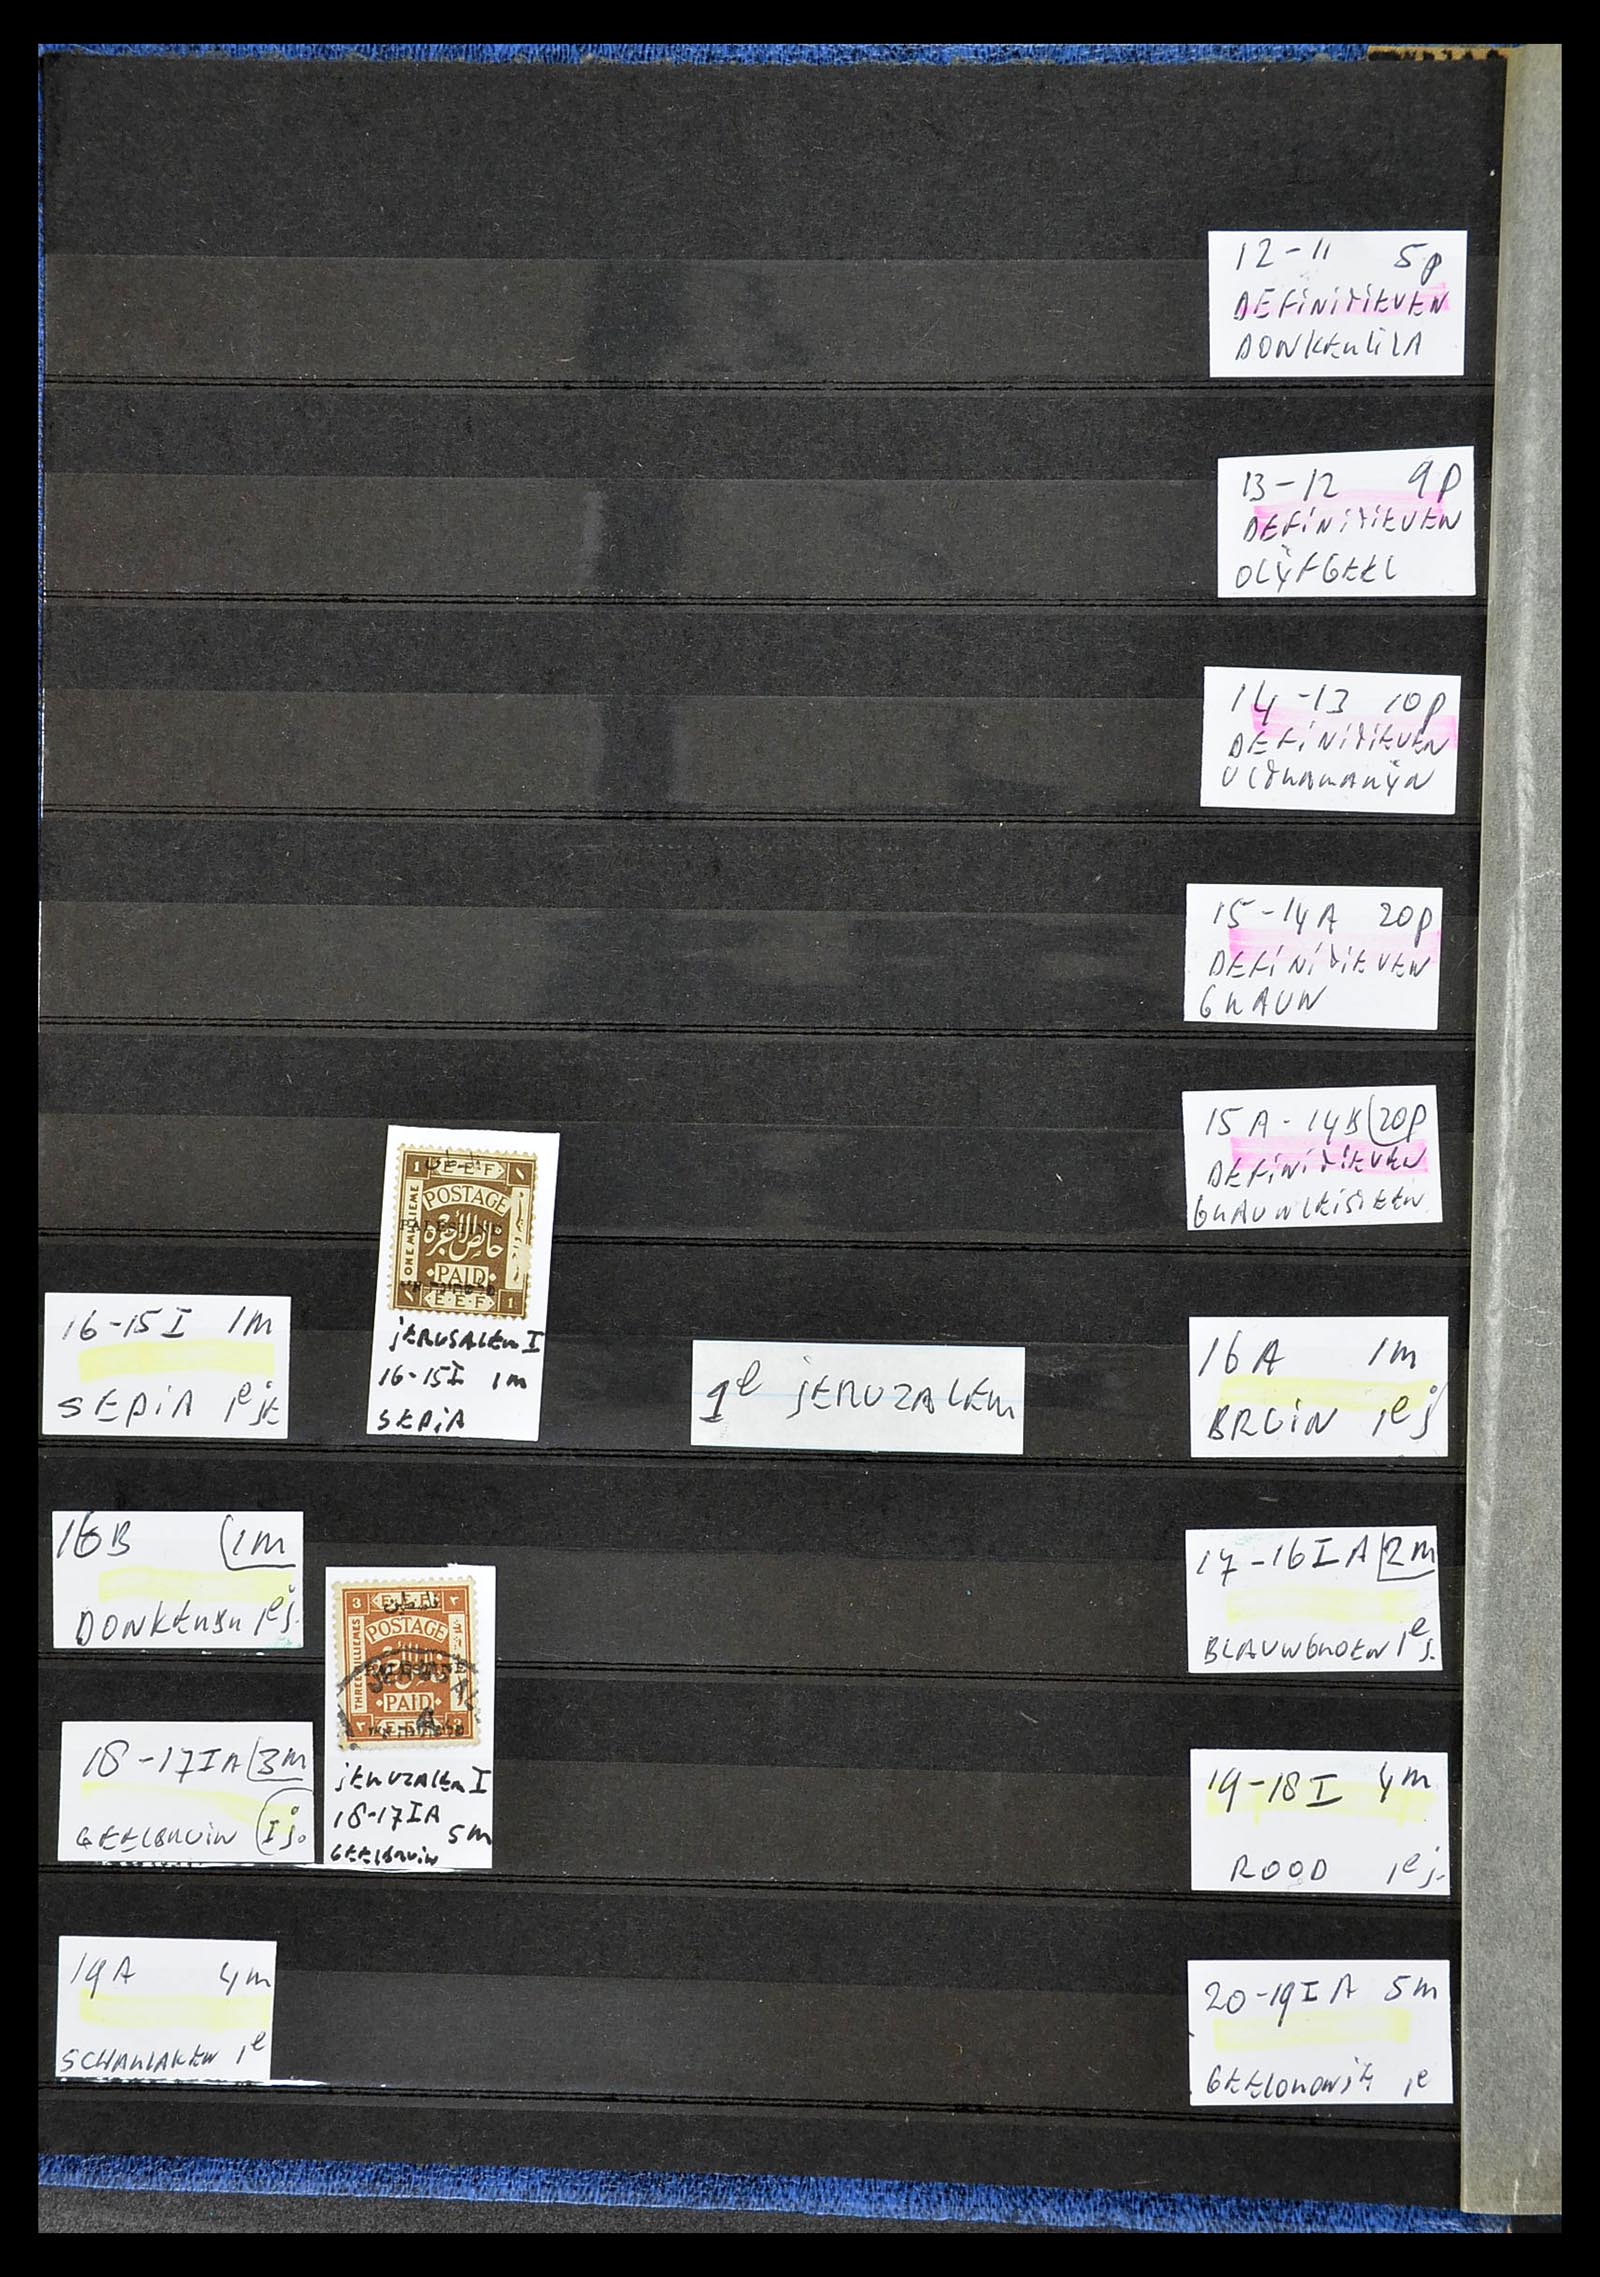 12-11 5p
DEFINITIEVEN
DONKERLILA
13-12 9p
DEFINITIEVEN
OLIJFGEEL
14-13 10p
DEFINITIEVEN
ULTRAMARIJN
15-14A 20p
DEFINITIEVEN
GRAUW
15A-14B 20p
DEFINITIEVEN
1 E·E·F ١
POSTAGE
ONE MILLIEME
خالص الأجرة
PAID
E·E·F 1
JERUSALEM I
16-15I 1m
SEPIA
16-15I 1m
SEPIA 1e je
1e JERUZALEM
16A 1m
BRUIN 1e j
16B 1m
DONKERBR 1e j.
17-16IA 2m
BLAUWGROEN 1e j.
3 E·E·F ٣
فلسطين
POSTAGE
THREE MILLIEMES
PAID
E·E·F 3
JERUZALEM I
18-17IA 5m
GEELBRUIN
18-17IA 3m
GEELBRUIN I j.
19-18I 4m
ROOD 1e j.
19A 4m
SCHARLAKEN 1e
20-19IA 5m
1e